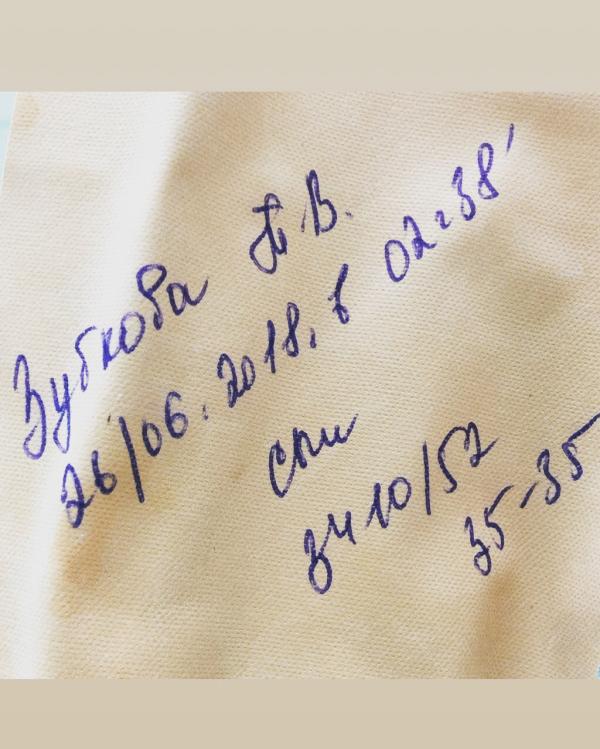 Зубкова А. В.
26/06.2018. в 02:38'
3410/52
35-35